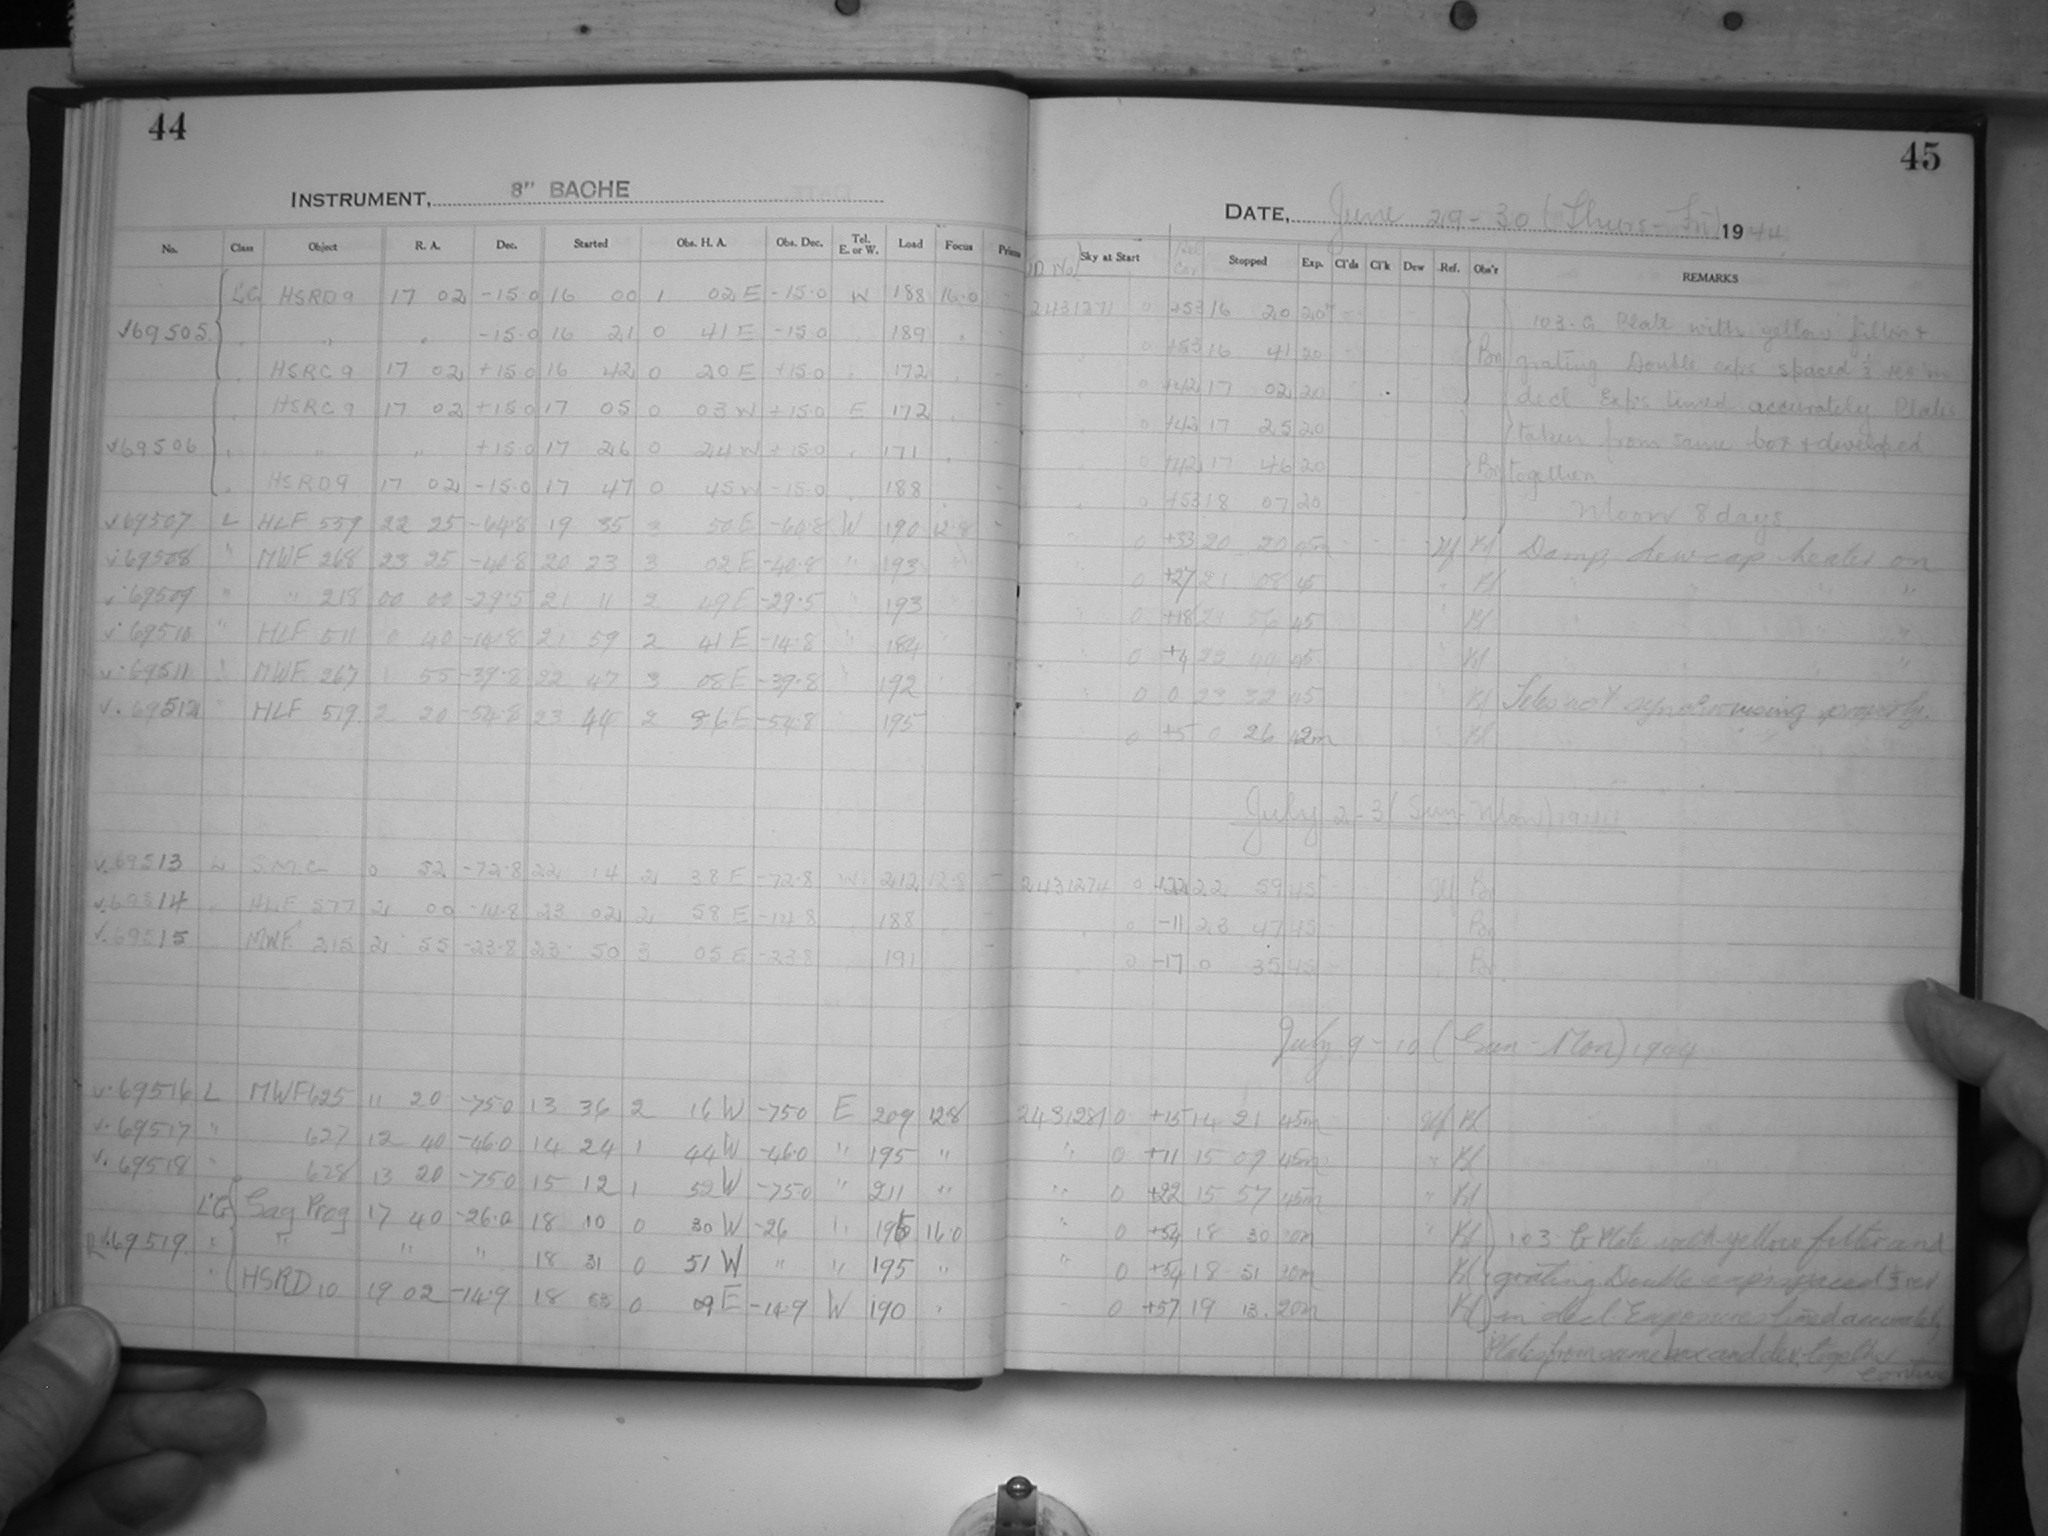 44
INSTRUMENT, 8" BACHE
No. Class Object R. A. Dec. Started Obs. H. A. Obs. Dec. Tel. E. or W. Load Focus
L'G HSRD9 17 02 -15.0 16 00 1 02 E -15.0 W 188 16.0
√69505 " " -15.0 16 21 0 41 E -15.0 189
HSRC9 17 02 +15.0 16 42 0 20 E +15.0 172
HSRC9 17 02 +15.0 17 05 0 03 W +15.0 E 172
√69506 " " +15.0 17 26 0 24 W +15.0 171
HSRD9 17 02 -15.0 17 47 0 45 W -15.0 188
√69507 L HLF 539 22 25 -64.8 19 35 3 50 E -64.8 W 190 12.8
√69508 " MWF 268 23 25 -40.8 20 23 3 02 E -40.8 " 193
√69509 " " 218 00 00 -29.5 21 11 2 49 E -29.5 " 193
√69510 " HLF 511 0 40 -14.8 21 59 2 41 E -14.8 " 184
√69511 " MWF 267 1 55 -39.8 22 47 3 08 E -39.8 " 192
√69512 " HLF 519 2 20 -54.8 23 44 2 36 E -54.8 195
√69513 L S.M.C 0 52 -72.8 22 14 2 38 E -72.8 W 212 12.8
√69514 HLF 577 2 00 -14.8 23 02 2 58 E -14.8 188
√69515 MWF 215 2 55 -23.8 23 50 3 05 E -23.8 191
√69516 L MWF 625 11 20 -75.0 13 36 2 16 W -75.0 E 209 12.8
√69517 " 627 12 40 -46.0 14 24 1 44 W -46.0 " 195 "
√69518 " 628 13 20 -75.0 15 12 1 52 W -75.0 " 211 "
L'G Sag Prog 17 40 -26.0 18 10 0 30 W -26 " 195 16.0
69519 " " " " 18 31 0 51 W " " 195 "
" HSRD 10 19 02 -14.9 18 53 0 09 E -14.9 W 190
45
DATE, June 29-30 (Thurs-Fri) 1944
JD No Sky at Start Stopped Exp. Cl'ds Cl'k Dew Ref. Obs'r REMARKS
2431271 0 +53 16 20 20m
0 +53 16 41 20
0 +42 17 02 20
0 +42 17 25 20
0 +42 17 46 20
0 +53 18 07 20
103-G Plate with yellow filter +
grating Double exps spaced ½ rev in
decl Exps timed accurately Plates
taken from same box + developed
together
Moon 8 days
0 +33 20 20 45m Damp, dewcap heater on
0 +27 21 08 45 " " "
0 +18 21 56 45 "
0 +4 22 44 45 "
0 0 23 32 45 Teles not synchronising properly.
0 +5 0 26 42m
July 2-3 (Sun-Mon) 1944
2431274 0 +22 22 59 45
0 -11 23 47 45
0 -17 0 35 45
July 9-10 (Sun-Mon) 1944
2431281 0 +15 14 21 45m
" 0 +11 15 09 45m
" 0 +22 15 57 45m
" 0 +54 18 30 20m 103-G Plate with yellow filter and
" 0 +54 18 51 20m grating. Double exps spaced ½ rev
0 +57 19 13 20m in decl. Exposures timed accurately
Plates from same box and dev. together